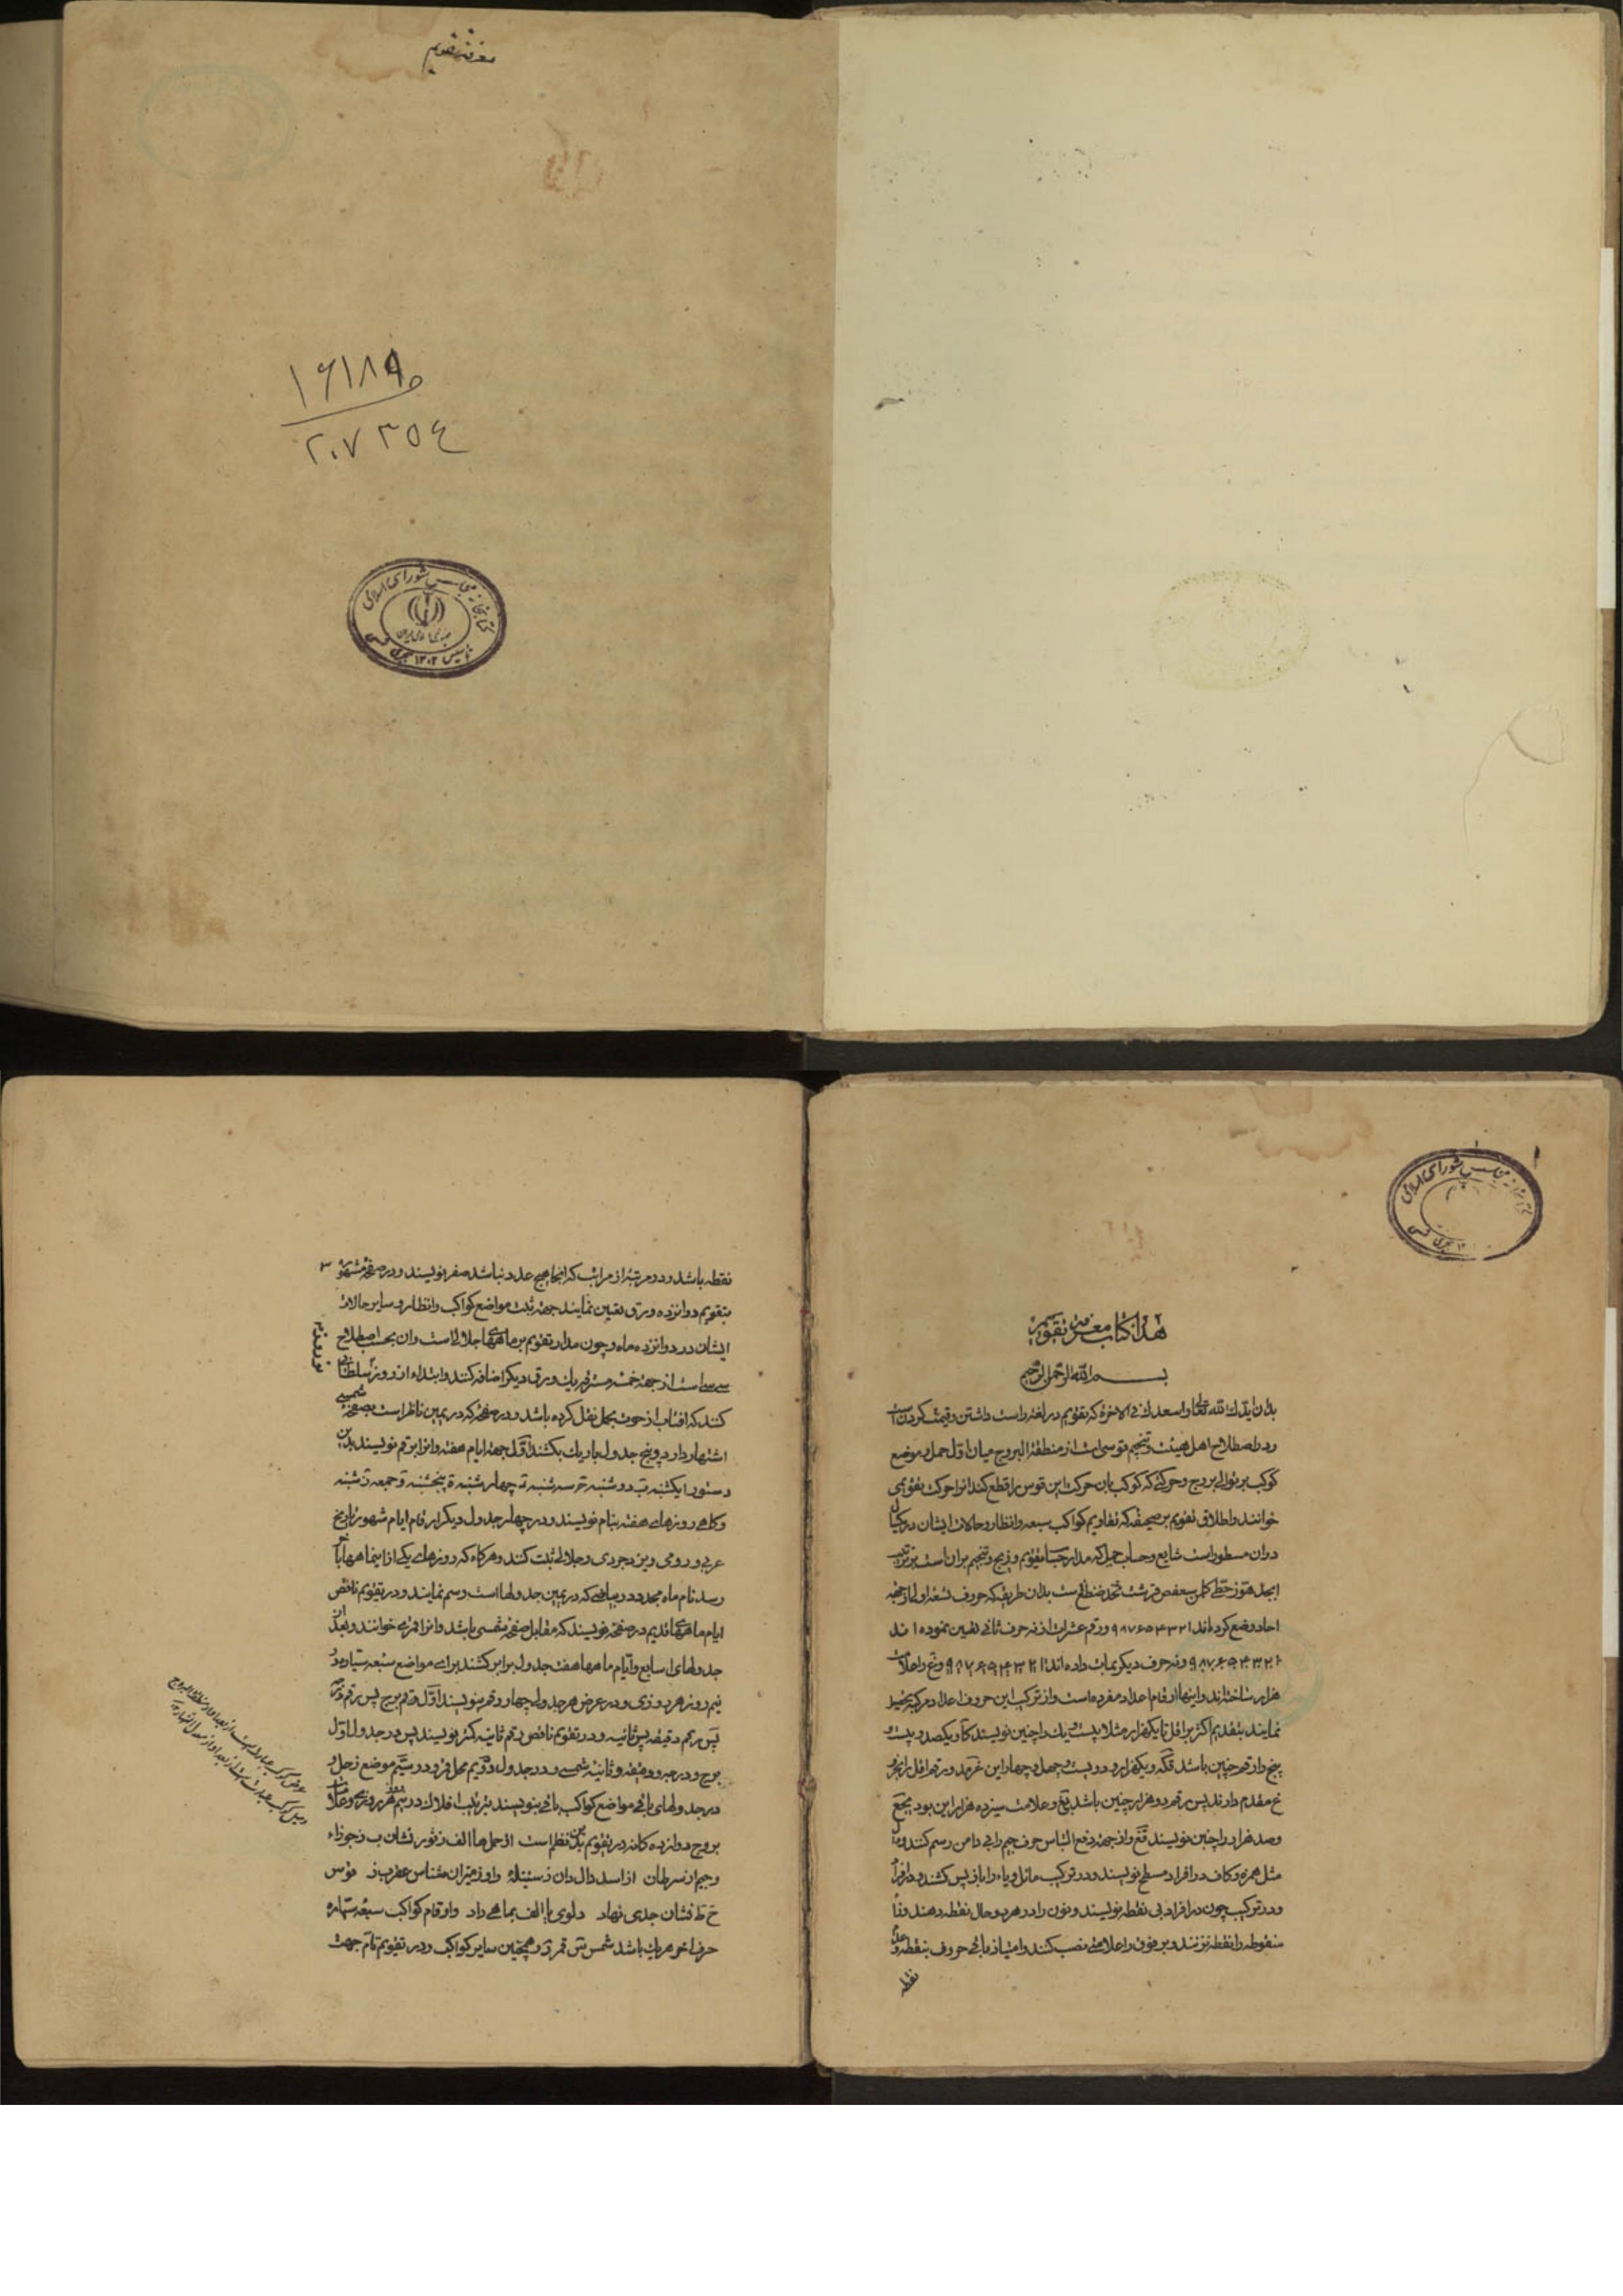 معرفة تقویم
۱۶۱۸۹۵
۲۰۷۳۵۴
کتابخانه مجلس شورای اسلامی
جمهوری اسلامی ایران
تأسیس ۱۳۰۲ هجری شمسی
هذا کتاب معرفة تقویم
بسم الله الرحمن الرحیم
بدان ایدك الله تعالی واسعدك فی الاخرة که تقویم در لغة راست داشتن وقیمت کردن است
ودر اصطلاح اهل هیئت وتنجیم قوسی است از منطقة البروج میان اول حمل وموضع
کوکب بر توالی بروج وحرکتی که کوکب بان حرکت این قوس را قطع کند انرا حرکت تقویمی
خوانند واطلاق تقویم بر صحیفه که تقاویم کواکب سبعه وانظار وحالات ایشان در یکسال
دران مسطور است شایع وحساب جمل که مدار حساب تقویم وزیج وتنجیم بران است بر ترتیب
ابجد هوز حطی کلمن سعفص قرشت ثخذ ضظغ ست بدان طریق که حروف تسعه اولی از جهة
احاد وضع کرده‌اند ۱ ۲ ۳ ۴ ۵ ۶ ۷ ۸ ۹ ورقم عشرات از نه حرف ثانی تعیین نموده اند
ونه حرف دیکر بمات داده اند وغ را علامت
هزار ساختند واینها ارقام اعداد مفرده است واز ترکیب این حروف اعداد مرکبه تحصیل
نمایند بتقدیم اکثر بر اقل تا یکهزار مثلا بیست ویك را چنین نویسند کا ویکصد وبیست و
پنج را رقم چنین باشد قکه ویکهزار ودویست وچهل وچهار این غرمد ورقم اقل از هزار بر
غ مقدم دارند پس رقم دو هزار چنین باشد بغ وعلامت سیزده هزار این بود یجغ
وصد هزار را چنین نویسند قغ واز جهة دفع التباس حرف جیم را بی دامن رسم کنند
مثل همزه وکاف در افراد مسطح نویسند ودر ترکیب مائل ویاء را باز پس کشند در افراد
ودر ترکیب چون در افراد بی نقطه نویسند ونون را در هر دو حال نقطه دهند وفاء
منقوطه را نقطه نزنند وبر فوق را علامتی نصب کنند وامتیاز باقی حروف بنقطه و عدم
نقطه
نقطه باشد ودر مرتبه از مراتب که انجا هیچ عدد نباشد صفر نویسند ودر صفحهٔ مشهور
بتقویم دوانزده ورق تعیین نمایند جهة ثبت مواضع کواکب وانظار وسایر حالات
ایشان در دوانزده ماه وچون مدار تقویم بر ماههای جلالی است وان بحسب اصطلاح
سی سی است از جهة خمسه مسترقه یك ورق دیکر اضافه کنند وابتداء از روز نوروز سلطانی
کنند که افتاب از حوت بحمل نقل کرده باشد ودر صفحه که در یمین ناظر است بصفحه شمسی
اشتهار دارد وپنج جدول باریك بکشند اول جهة ایام هفته وانرا برقم نویسند بدین
دستور ا یکشنبه ب دوشنبه ج سه شنبه د چهارشنبه ه پنجشنبه و جمعه ز شنبه
وکاهی روزهای هفته بنام نویسند ودر چهار جدول دیکر ارقام ایام شهور تاریخ
عربی ورومی ویزدجردی وجلالی ثبت کنند وهرکاه که روزهای یکی ازاینماهها باخر
رسد نام ماه مجدد در بیاضی که در یمین جدولها است رسم نمایند ودر تقویم ناقص
ایام ماههای قدیم در صفحه نویسند که مقابل صفحه شمسی باشد وانرا قمری خوانند وبعد از
جدولهای اسابیع وایام ماهها هفت جدول برابر کشند برای مواضع سبعه سیاره در
نیم روز هر روزی ودر عرض هر جدول چهار رقم نویسند اول رقم برج پس رقم درجه
پس رقم دقیقه پس ثانیه ودر تقویم ناقص رقم ثانیه کمتر نویسند پس در جدول اول
برج ودرجه ودقیقه وثانیه شمس ودر جدول دویم محل قمر ودر سیم موضع زحل و
در جدولهای باقی مواضع کواکب باقی نویسند بترتیب افلاك در نیم روز هر روزی وعلامات
بروج دوازده کانه در تقویم بدین نظم است از حمل ها الف ز ثور نشان ب ز جوزاء
وجیم از سرطان از اسد دال دان ز سنبله ه واو ز میزان شناس عقرب ز قوس
ح ط نشان جدی نهاد دلو ی یا الف بماهی داد وارقام کواکب سبعه سیاره
حرف اخر هر یك باشد شمس س قمر ر وهمچنین سایر کواکب ودر تقویم تام جهت